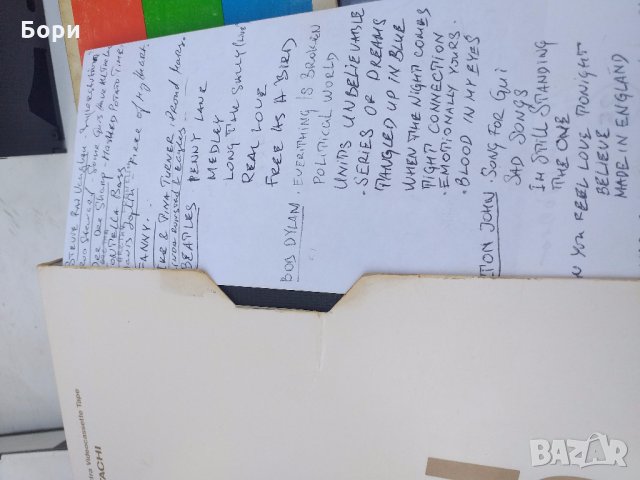 Бори
STEVIE RAY Vaughan
FANNY.
IKE & TINA TURNER. Proud Mary.
BEATLES PENNY LANE
MEDLEY
LONG TIME SALLY (Live
REAL LOVE
FREE AS A BIRD
BOB DYLAN. EVERYTHING IS BROKEN
POLITICAL WORLD
UNTIS UNBELIEVABLE
• SERIES OF DREAMS
TANGLED UP IN BLUE
WHEN THE NIGHT COMES
TIGHT CONNECTION
• EMOTIONALLY YOURS.
• BLOOD IN MY EYES
TON JOHN SONG FOR GUI
SAD SONGS
IM STILL STANDING
THE ONE
N YOU FEEL LOVE TONIGHT
BELIEVE
MADE IN ENGLAND
tra Videocassette Tape
TACHI
BAZAR
bg